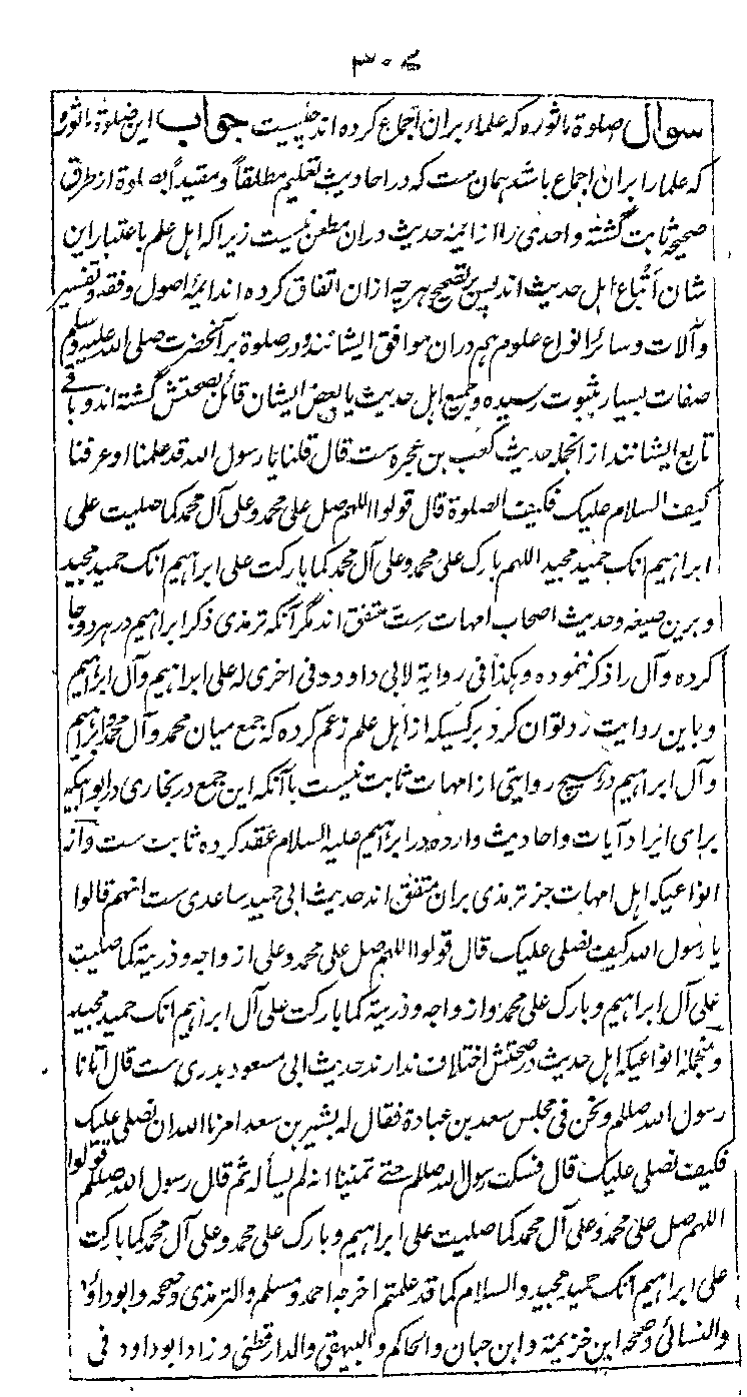 ۳۰۷
سوال صلوة ماثوره که علما بران اجماع کرده اند چیست جواب این صلوة ماثوره
که علما را بران اجماع باشد همان ست که در احادیث تعلیم مطلقاً و مقیداً بصلوة از طرق
صحیحه ثابت گشته و احدی را از ائمهٔ حدیث دران مطعن نیست زیرا که اهل علم باعتبار این
شان اتباع اهل حدیث اند پس بتصحیح هر چه ازان اتفاق کرده اند ایمهٔ اصول و فقه و تفسیر
و آلات و سائر انواع علوم هم دران موافق ایشانند و در صلوة بر آنحضرت صلی الله علیه وسلم
صفات بسیار بثبوت رسیده و جمیع اهل حدیث یا بعض ایشان قائل بصحتش گشته اند و باقی
تابع ایشانند از انجمله حدیث کعب بن عجره ست قال قلنا یا رسول الله قد علمنا او عرفنا
کیف السلام علیک فکیف الصلوة قال قولوا اللهم صل علی محمد و علی آل محمد کما صلیت علی
ابراهیم انک حمید مجید اللهم بارک علی محمد و علی آل محمد کما بارکت علی ابراهیم انک حمید مجید
و برین صیغه و حدیث اصحاب امهات ست متفق اند مگر آنکه ترمذی ذکر ابراهیم در هر دو جا
کرده و آل را ذکر ننموده و هکذا فی روایة لابی داود و فی اخری له علی ابراهیم و آل ابراهیم
و باین روایت رد توان کرد بر کسیکه از اهل علم زعم کرده که جمع میان محمد و آل محمد و ابراهیم
و آل ابراهیم در هیچ روایتی از امهات ثابت نیست با آنکه این جمع در بخاری در
برای ایراد آیات و احادیث وارده در ابراهیم علیه السلام عقد کرده ثابت ست و از
انواعیکه اهل امهات جز ترمذی بران متفق اند حدیث ابی حمید ساعدی ست انهم قالوا
یا رسول الله کیف نصلی علیک قال قولوا اللهم صل علی محمد و علی ازواجه و ذریته کما صلیت
علی آل ابراهیم و بارک علی محمد و ازواجه و ذریته کما بارکت علی آل ابراهیم انک حمید مجید
و منجملهٔ انواعیکه اهل حدیث در صحتش اختلاف ندارند حدیث ابی مسعود بدری ست قال اتانا
رسول الله صللم و نحن فی مجلس سعد بن عبادة فقال له بشیر بن سعد امرنا الله ان نصلی علیک
فکیف نصلی علیک قال فسکت رسول الله صللم حتے تمنینا انه لم یسأله ثم قال رسول الله صللم قولوا
اللهم صل علی محمد و علی آل محمد کما صلیت علی ابراهیم و بارک علی محمد و علی آل محمد کما بارکت
علی ابراهیم انک حمید مجید و السلام کما قد علمتم اخرجه احمد و مسلم و الترمذی و صححه و ابو داؤد
و النسائی و صححه ابن خزیمة و ابن حبان و الحاکم و البیهقی و الدارقطنی و زاد ابو داود فی